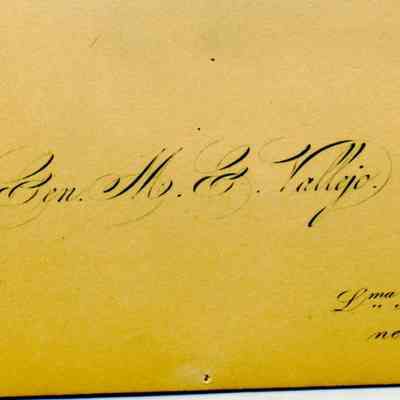 Gen. M. E. Vallejo.
L.ma